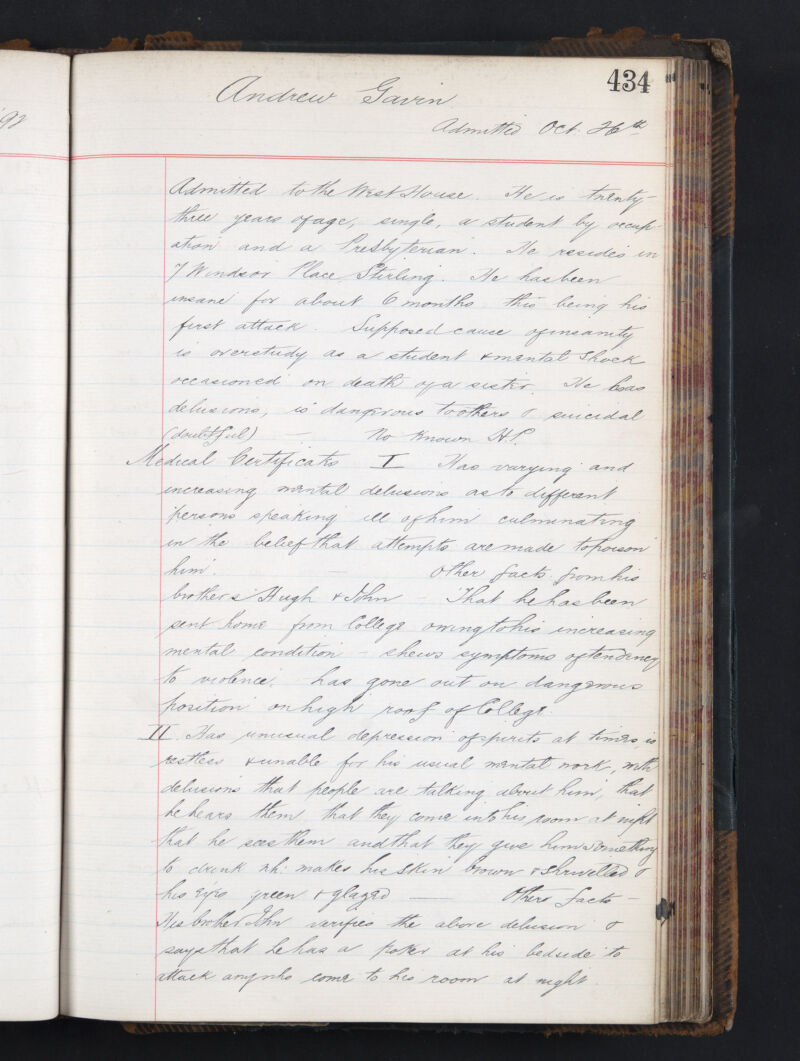 '92
434
Andrew Gavin
Admitted Oct. 26th
Admitted to the West House. He is twenty-
three years of age, single, a student by occup-
ation and a Presbyterian. He resides in
7 Windsor Place Stirling. He has been
insane for about 6 months this being his
first attack. Supposed cause of insanity
is overstudy as a student & mental shock
occasioned on death of a sister. He has
delusions, is dangerous to others & suicidal
(doubtful) — No known H.P.
Medical Certificates I Has varying and
increasing mental delusions as to different
persons speaking ill of him culminating
in the belief that attempts are made to poison
him. — Other facts from his
brothers Hugh & John – That he has been
sent home from College owing to his increasing
mental condition – shews symptoms of tendency
to violence. has gone out on dangerous
position on high roof of College.
II. Has unusual depression of spirits at times, is
restless & unable for his usual mental work, with
delusions that people are talking about him, that
he hears them that they come into his room at night
that he sees them and that they give him something
to drink wh: makes his skin brown & shrivelled &
his eyes green & glazed — Other facts –
His brother John verifies the above delusion &
says that he has a poker at his bedside to
attack any who come to his room at night.